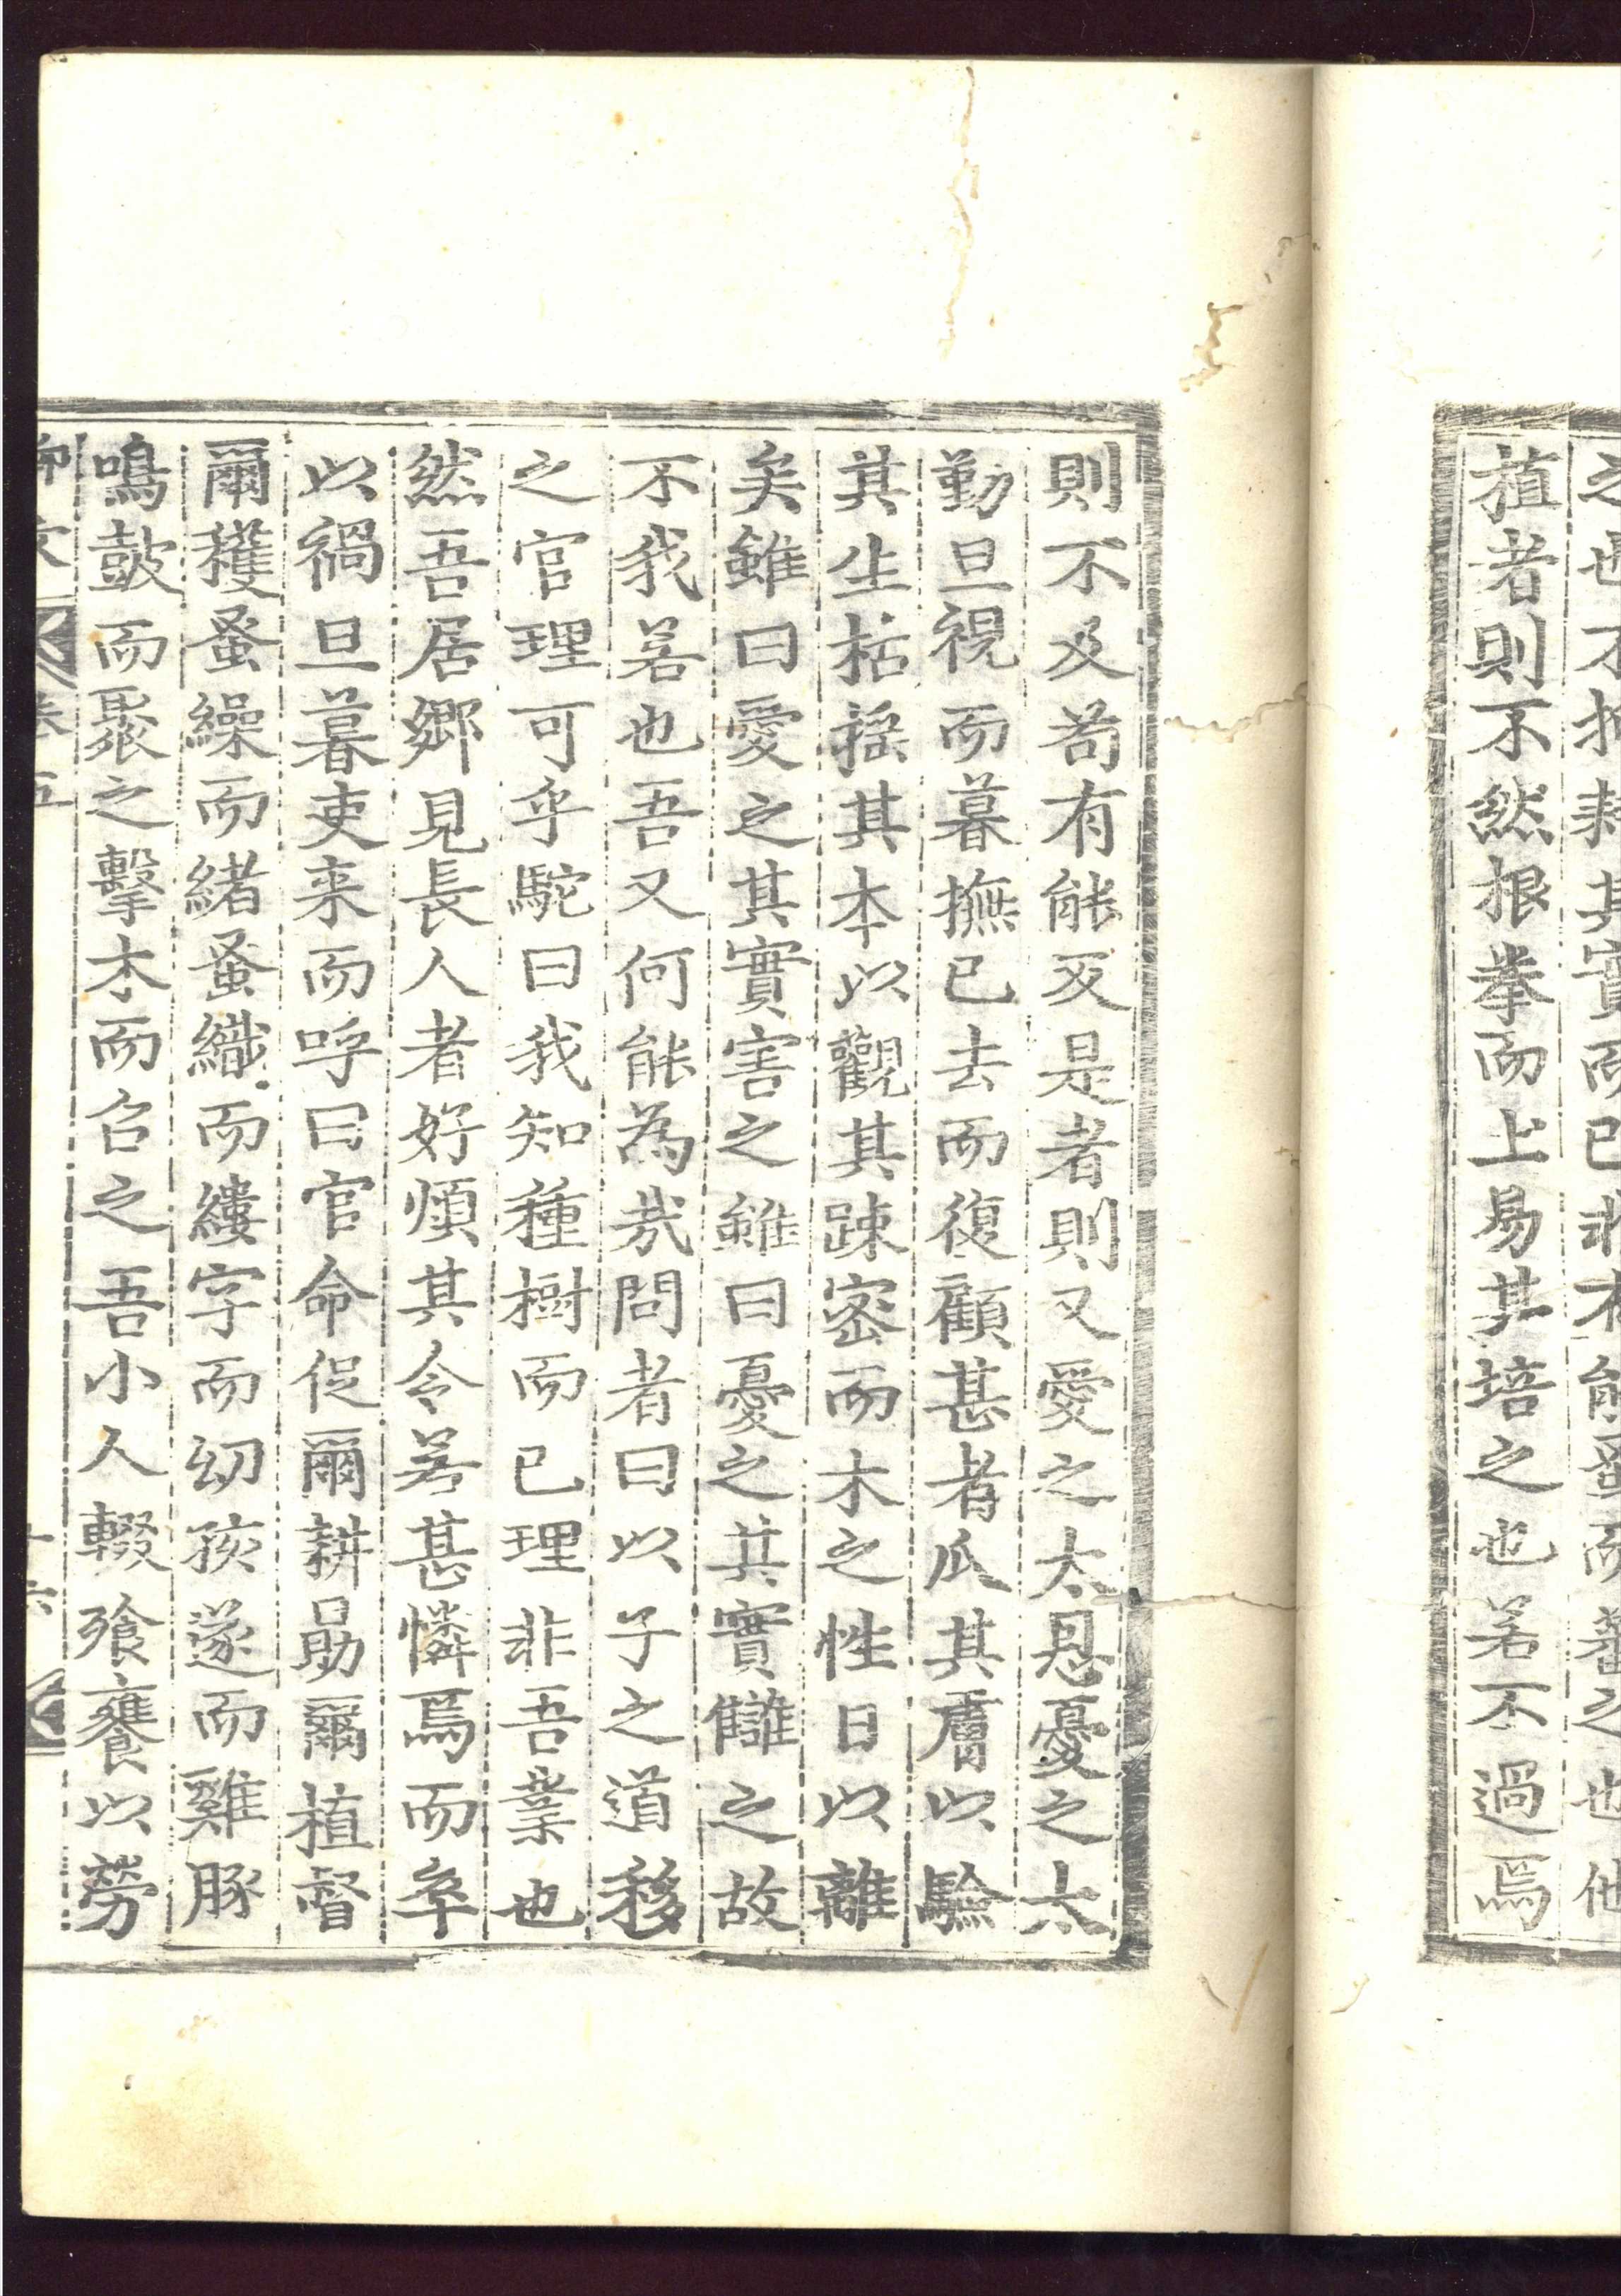 之也不抑耗其實而已非有能蚤而蕃之也他
植者則不然根拳而土易其培之也若不過焉
則不及苟有能反是者則又愛之太恩憂之太
勤旦視而暮撫已去而復顧甚者爪其膚以驗
其生枯揺其本以觀其踈密而木之性日以離
矣雖曰愛之其實害之雖曰憂之其實讎之故
不我若也吾又何能為㢤問者曰以子之道移
之官理可乎駝曰我知種樹而已理非吾業也
然吾居鄉見長人者好煩其令若甚憐焉而卒
以禍旦暮吏来而呼曰官命促爾耕勗爾植督
爾穫蚤繰而緒蚤織而縷字而幼孩遂而雞豚
鳴鼓而聚之擊木而召之吾小人輟飱饔以勞
柳文 卷五 十六